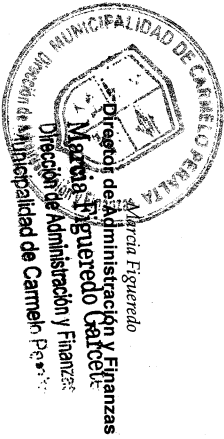 MUNICIPALIDAD DE CARMELO PERALTA
Marcia Figueredo
Director de Administración y Finanzas
Marcia Figueredo Garcete
Dirección de Administración y Finanzas
Municipalidad de Carmelo